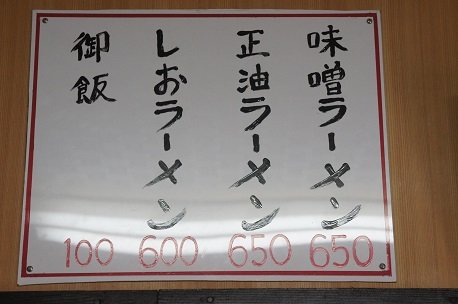 味噌ラーメン 650
正油ラーメン 650
しおラーメン 600
御飯 100